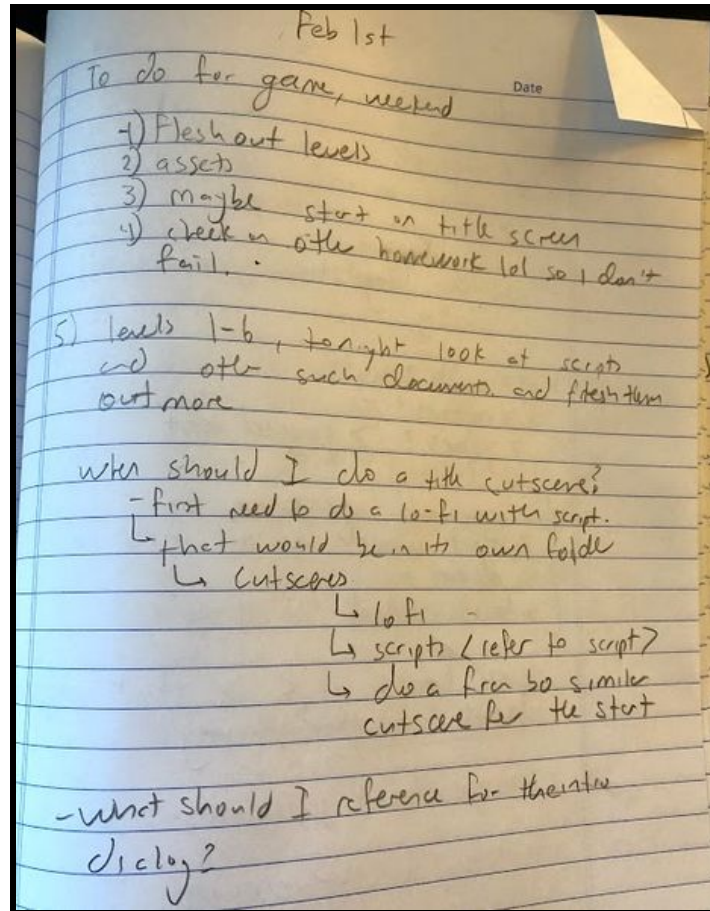 Feb 1st
To do for game, weekend
Date
1) Flesh out levels
2) assets
3) maybe start on title screen
4) check on othe homework lol so I don't
fail.
5) levels 1-6, tonight look at scripts
and othe such documents. and flesh them
out more
when should I do a title cutscene?
- first need to do a lo-fi with script.
↳ that would be in its own folde
↳ cutscenes
↳ lofi
↳ scripts (refer to script)
↳ do a similar
cutscene for the start
- what should I reference for the intro
dialog?